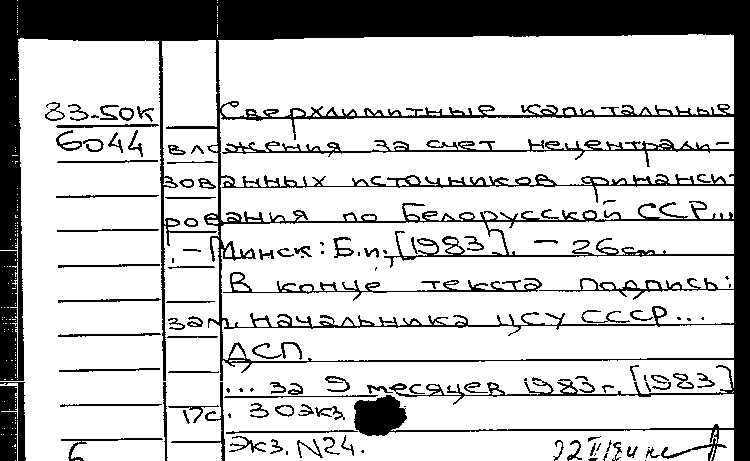 83-50К Сверхлимитные капитальные
6044 вложения за счет нецентрали-
зованных источников финанси-
рования по Белорусской ССР...
. – Минск: Б.и., [1983]. – 26 см.
В конце текста подпись:
зам. начальника ЦСУ СССР...
ДСП.
... за 9 месяцев 1983 г. [1983]
с. 30 экз.
Экз. N24.
6